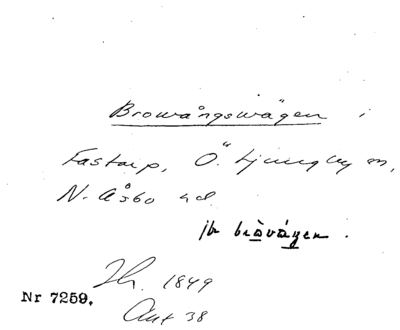 Browångswägen i
Fastarp, Ö. Ljungby sn,
N. Åsbo hd
jfr
Nr 7259.
1849
Akt 38